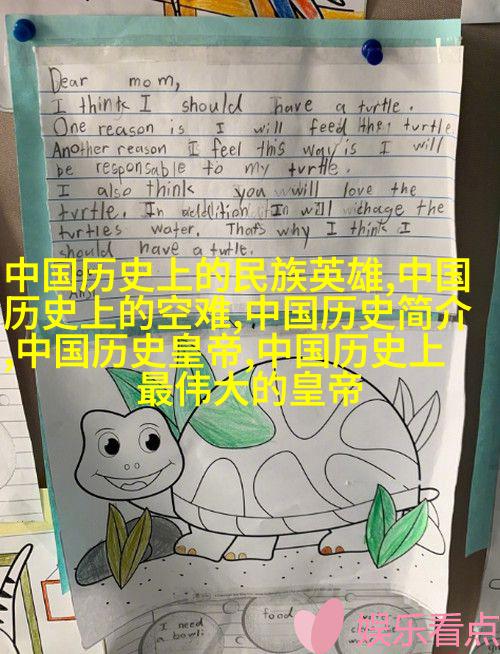 Dear mom,
I think I should have a turtle.
One reason is I will feed the turtle.
Another reason I feel this way is I will
be responsable to my turtle.
I also think you will love the
turtle. In addition I will chage the
turtles water. That's why I think I
should have a turtle.
中国历史上的民族英雄,中国
历史上的空难,中国历史简介
,中国历史皇帝,中国历史上
最伟大的皇帝
I need
a bowl
food
娱乐看点